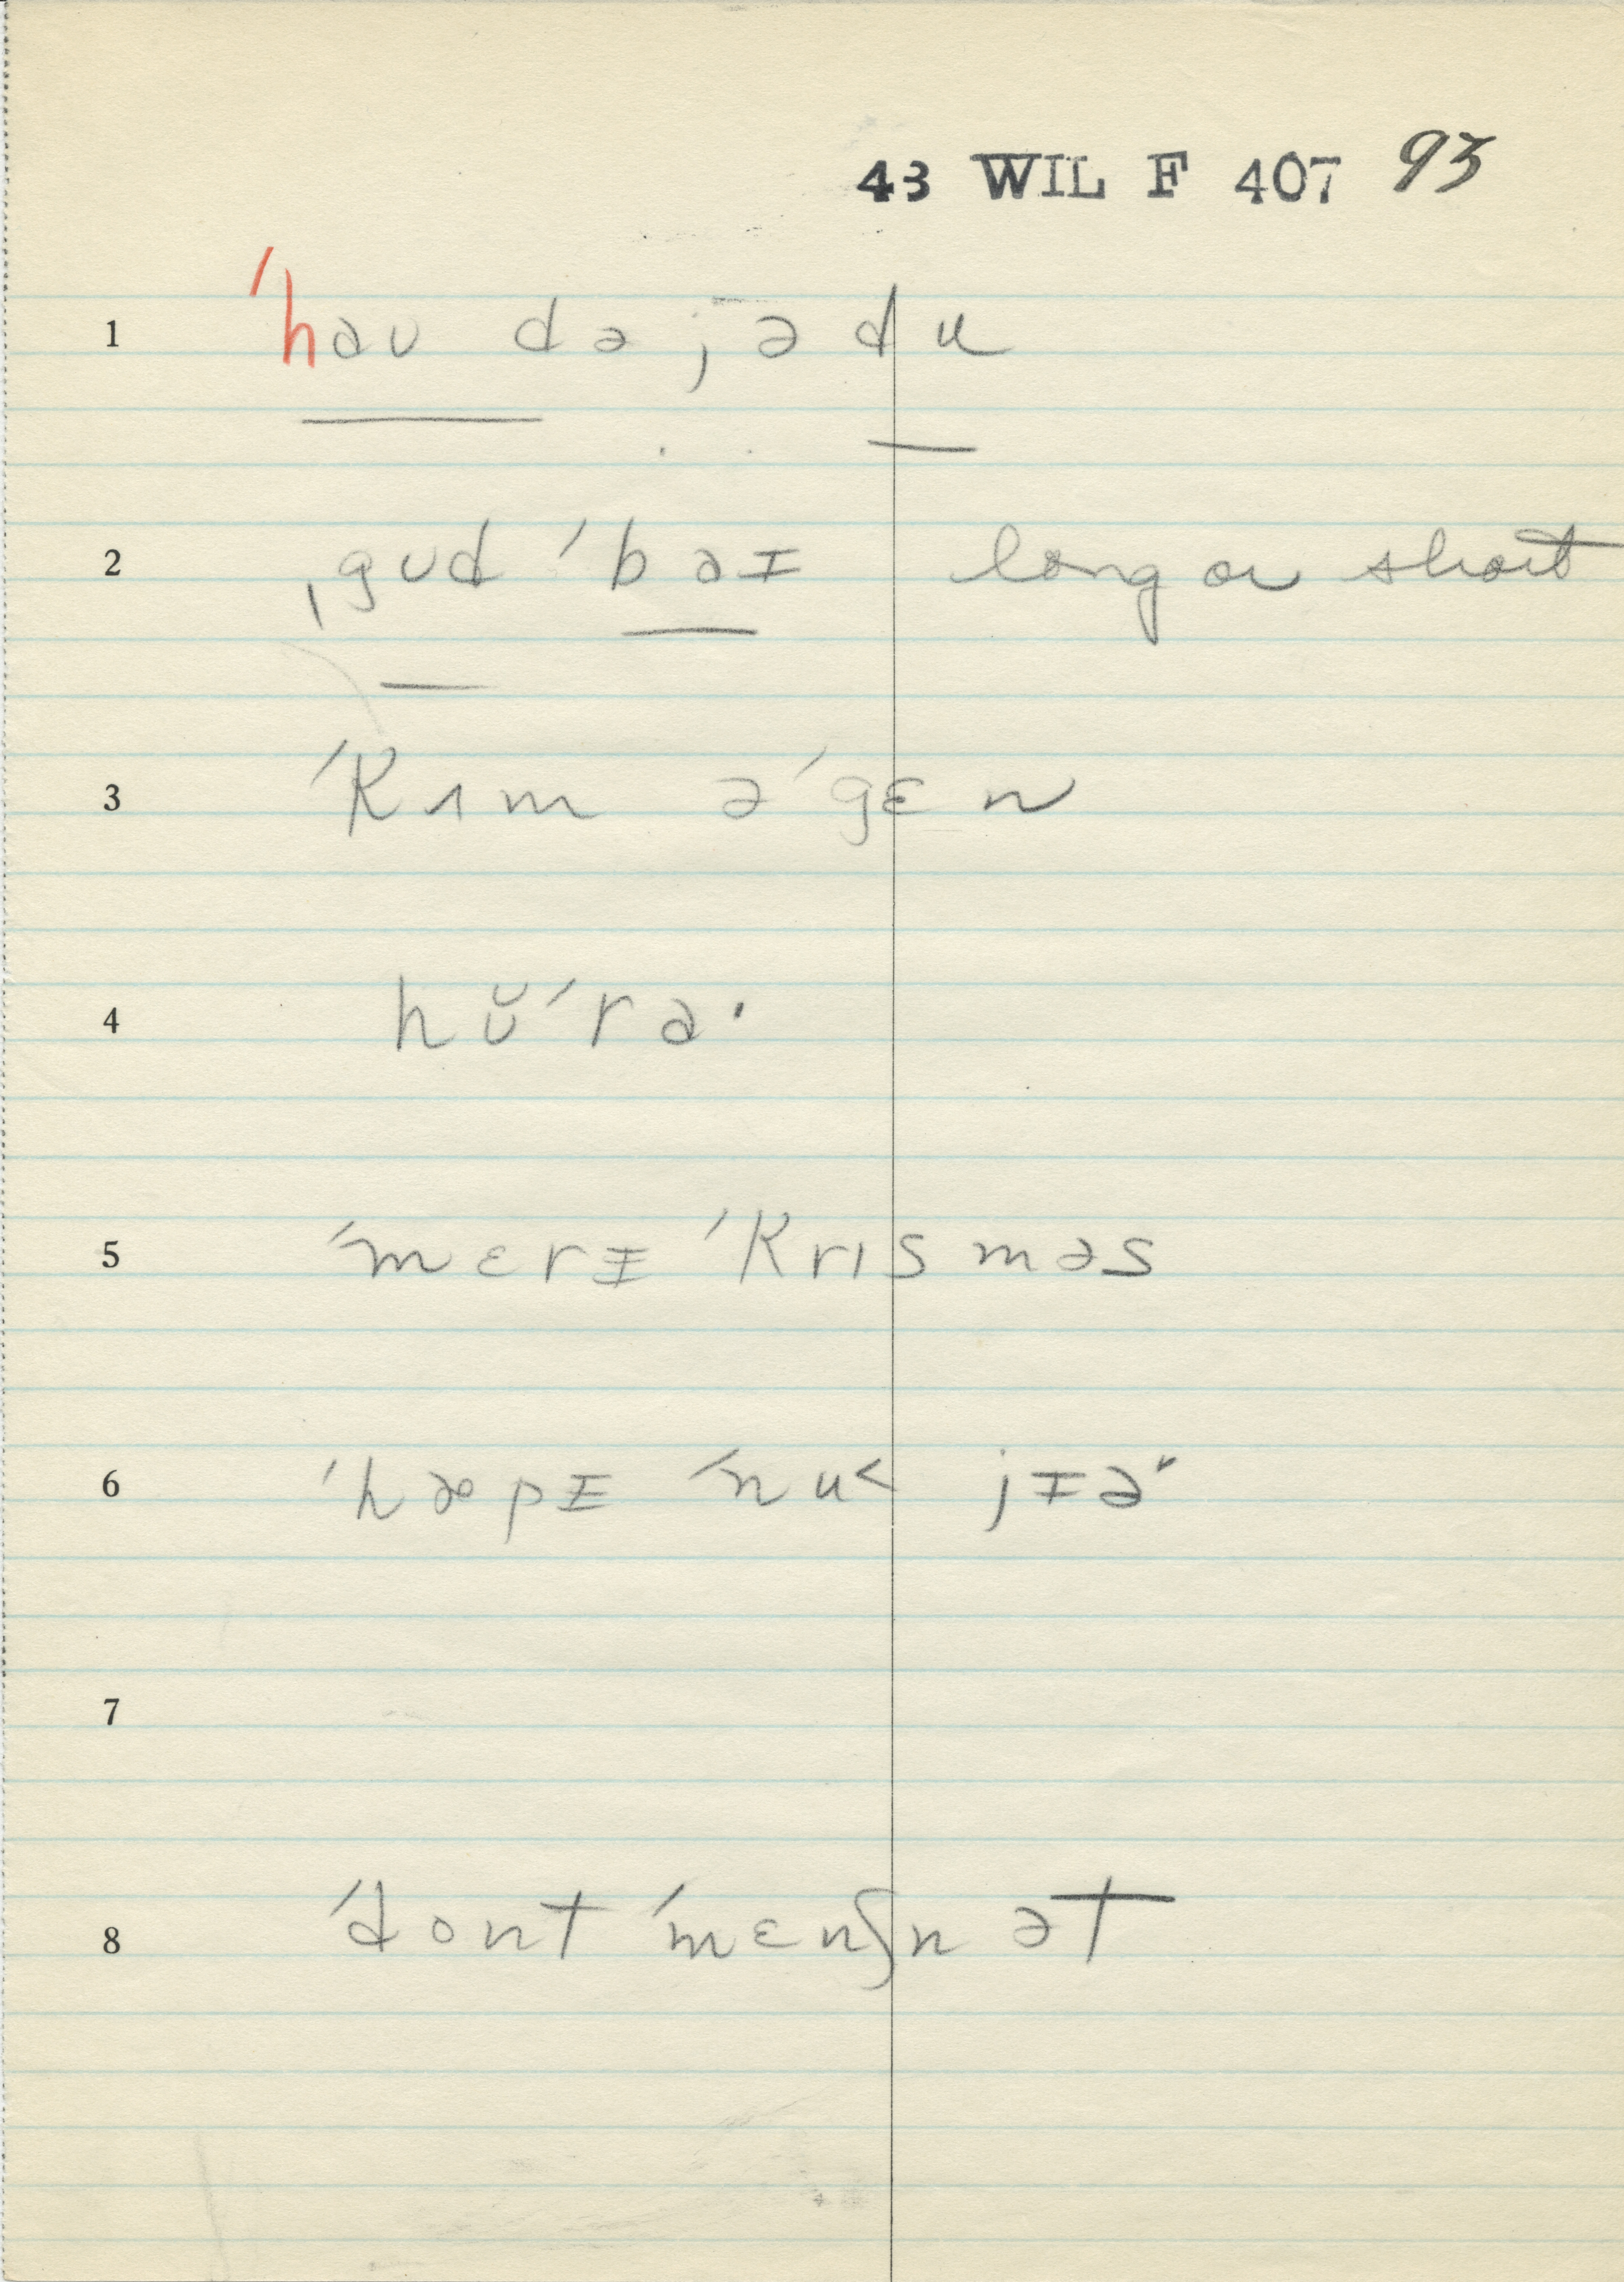 43 WIL F 407 93
1 ˈhaʊ də jə du
2 ˌgʊd ˈbaɪ long or short
3 ˈkʌm əˈgɛn
4 hʊ̆ˈra·
5 ˈmɛrɪ ˈkrɪsməs
6 ˈhæpɪ ˈnu˂ jɪə˞
7
8 ˈdont ˈmɛnʃn ət